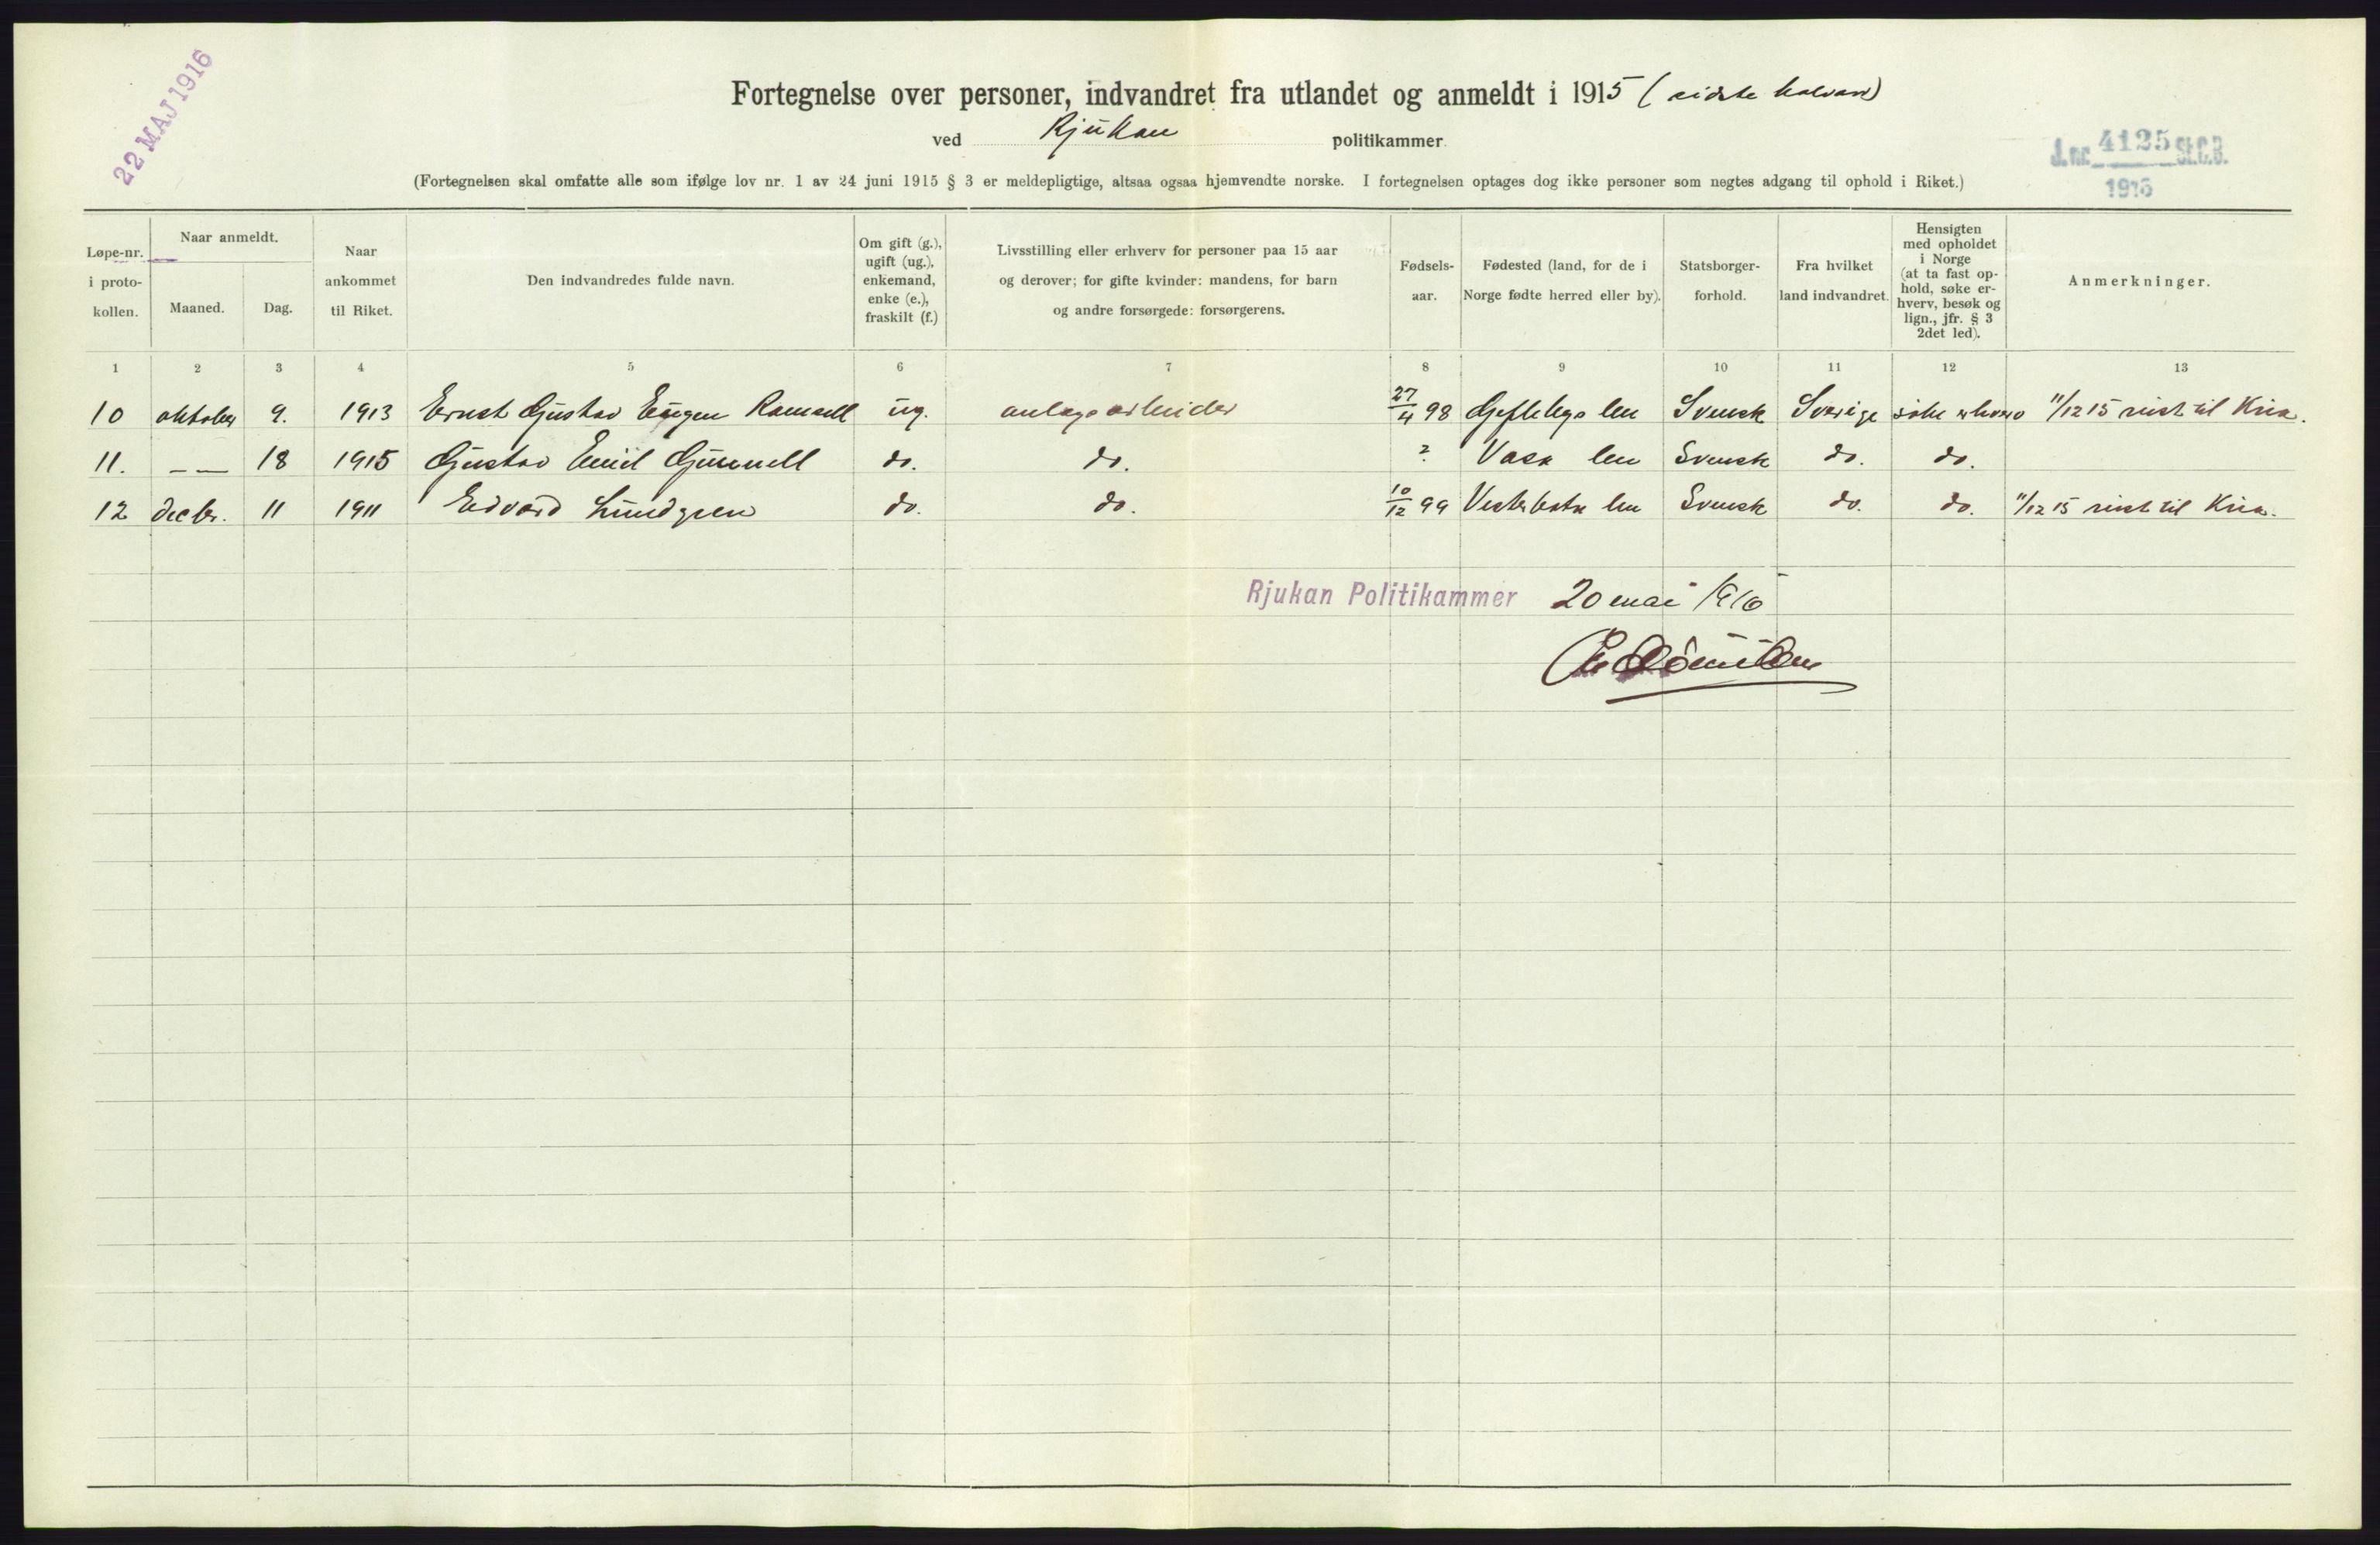 22 MAJ 1916
Fortegnelse over personer, indvandret fra utlandet og anmeldt i 1915 (sidste halvaar)
ved Rjukan politikammer.
J. nr. 4125 St.C.B.
1916
(Fortegnelsen skal omfatte alle som ifølge lov nr. 1 av 24 juni 1915 § 3 er meldepligtige, altsaa ogsaa hjemvendte norske. I fortegnelsen optages dog ikke personer som negtes adgang til ophold i Riket.)
Løpe-nr.
i proto-
kollen.
Naar anmeldt.
Maaned.
Dag.
Naar
ankommet
til Riket.
Den indvandredes fulde navn.
Om gift (g.),
ugift (ug.),
enkemand,
enke (e.),
fraskilt (f.)
Livsstilling eller erhverv for personer paa 15 aar
og derover; for gifte kvinder: mandens, for barn
og andre forsørgede: forsørgerens.
Fødsels-
aar.
Fødested (land, for de i
Norge fødte herred eller by).
Statsborger-
forhold.
Fra hvilket
land indvandret.
Hensigten
med opholdet
i Norge
(at ta fast op-
hold, søke er-
hverv, besøk og
lign., jfr. § 3
2det led).
Anmerkninger.
1 2 3 4 5 6 7 8 9 10 11 12 13
10 oktober 9. 1913 Ernst Gustav Eugen ug. anlægsarbeider 27/4 98 len Svensk Sverige søke erhverv 11/12 15 reist til Kria.
11. – — 18 1915 Gustav Emil do. do. ? Vasa len Svensk do. do.
12 decbr. 11 1911 Edvard Lundgren do. do. 10/12 99 len Svensk do. do. 11/12 15 reist til Kria.
Rjukan Politikammer 20 mai 1916